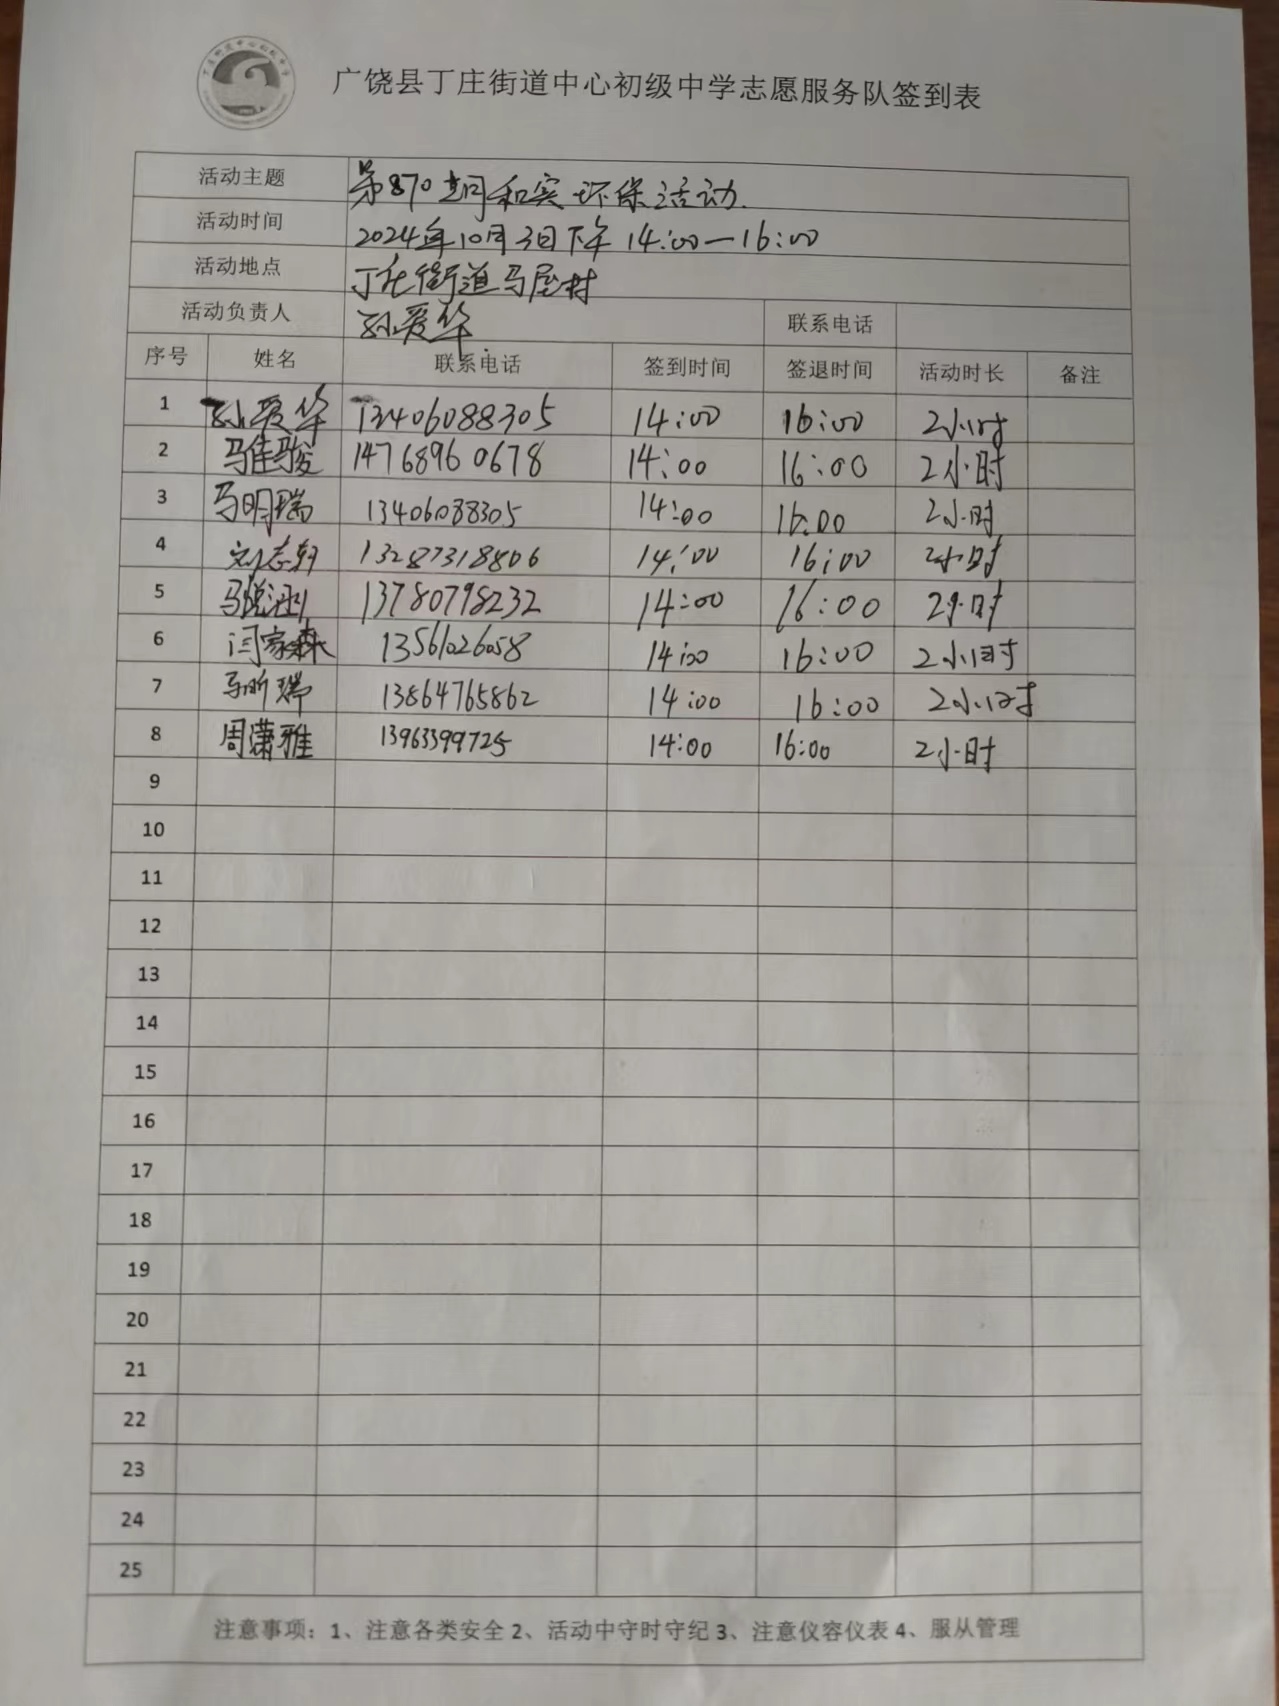 广饶县丁庄街道中心初级中学志愿服务队签到表
活动主题 第870期和实环保活动.
活动时间 2024年10月3日下午14:00—16:00
活动地点 丁庄街道马屋村
活动负责人 孙爱华 联系电话
序号 姓名 联系电话 签到时间 签退时间 活动时长 备注
1 孙爱华 13406088305 14:00 16:00 2小时
2 马佳骏 14768960678 14:00 16:00 2小时
3 马明瑞 13406088305 14:00 16:00 2小时
4 刘志朝 13287318806 14:00 16:00 2小时
5 13780798232 14:00 16:00 2小时
6 闫家森 13561026058 14:00 16:00 2小时
7 马昕瑞 13864765862 14:00 16:00 2小时
8 周潇雅 13963399725 14:00 16:00 2小时
9
10
11
12
13
14
15
16
17
18
19
20
21
22
23
24
25
注意事项：1、注意各类安全 2、活动中守时守纪 3、注意仪容仪表 4、服从管理